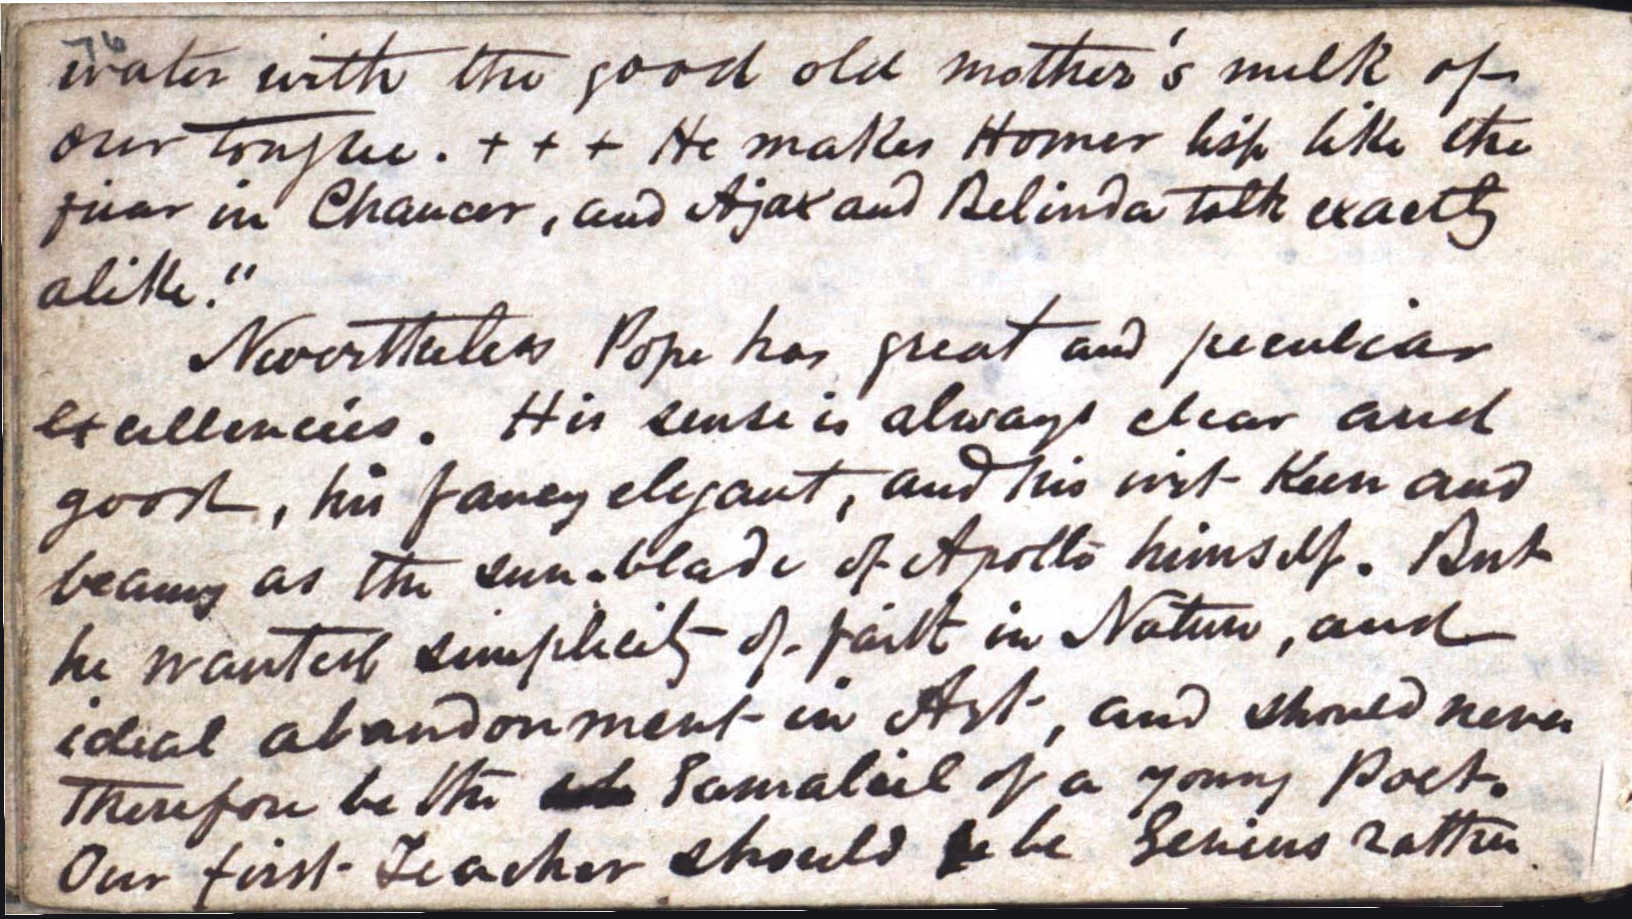 76
water with the good old mother's milk of
our tongue. + + + He makes Homer lisp like the
friar in Chaucer, and Ajax and Belinda talk exactly
alike."
Nevertheless Pope has great and peculiar
excellencies. His sense is always clear and
good, his fancy elegant, and his wit keen and
beamy as the sun-blade of Apollo himself. But
he wanted simplicity of faith in Nature, and
ideal abandonment in Art, and should never
therefore be the Gamaliel of a young Poet.
Our first Teacher should be Genius rather